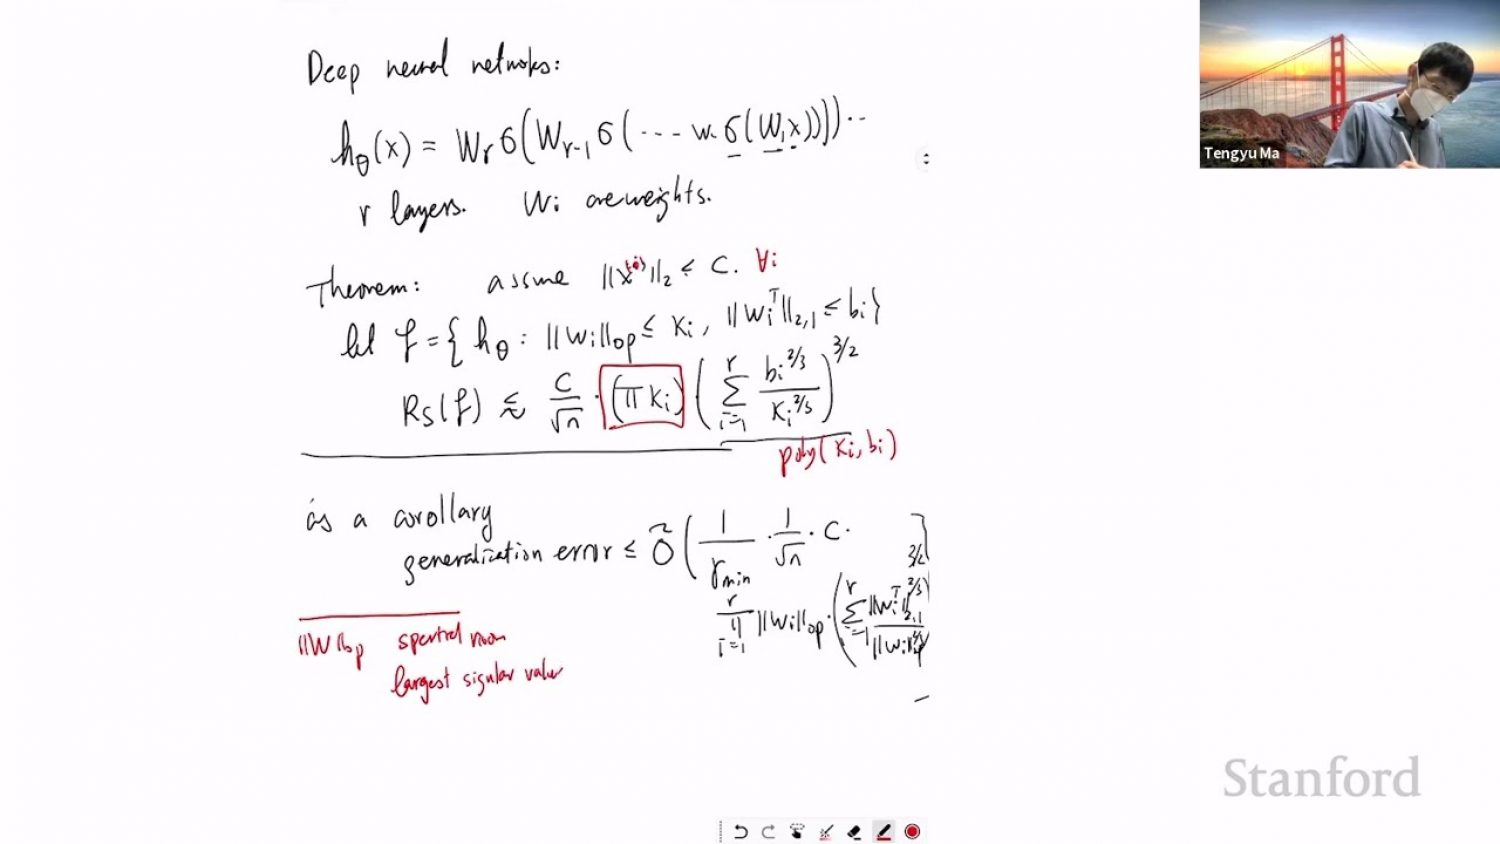 Deep neural networks:
h_θ(x) = W_r σ(W_{r-1} σ(··· W· σ(W_1 x))))··
r layers. W_i are weights.
Theorem: assume ||x^{(i)}||_2 ≤ C. ∀i
let F = { h_θ : ||W_i||_op ≤ K_i, ||W_i^T||_{2,1} ≤ b_i }
R_S(F) ≲ C/√n · (Π K_i) · ( Σ_{i=1}^{r} b_i^{2/3} / K_i^{2/3} )^{3/2}
poly(K_i, b_i)
as a corollary
generalization error ≤ Õ ( 1/γ_min · 1/√n · C ·
Π_{i=1}^{r} ||W_i||_op · ( Σ_{i=1}^{r} ||W_i^T||_{2,1}^{2/3} / ||W_i||_op^{2/3} )^{3/2} )
||W||_op spectral norm
largest sigular value
Tengyu Ma
Stanford